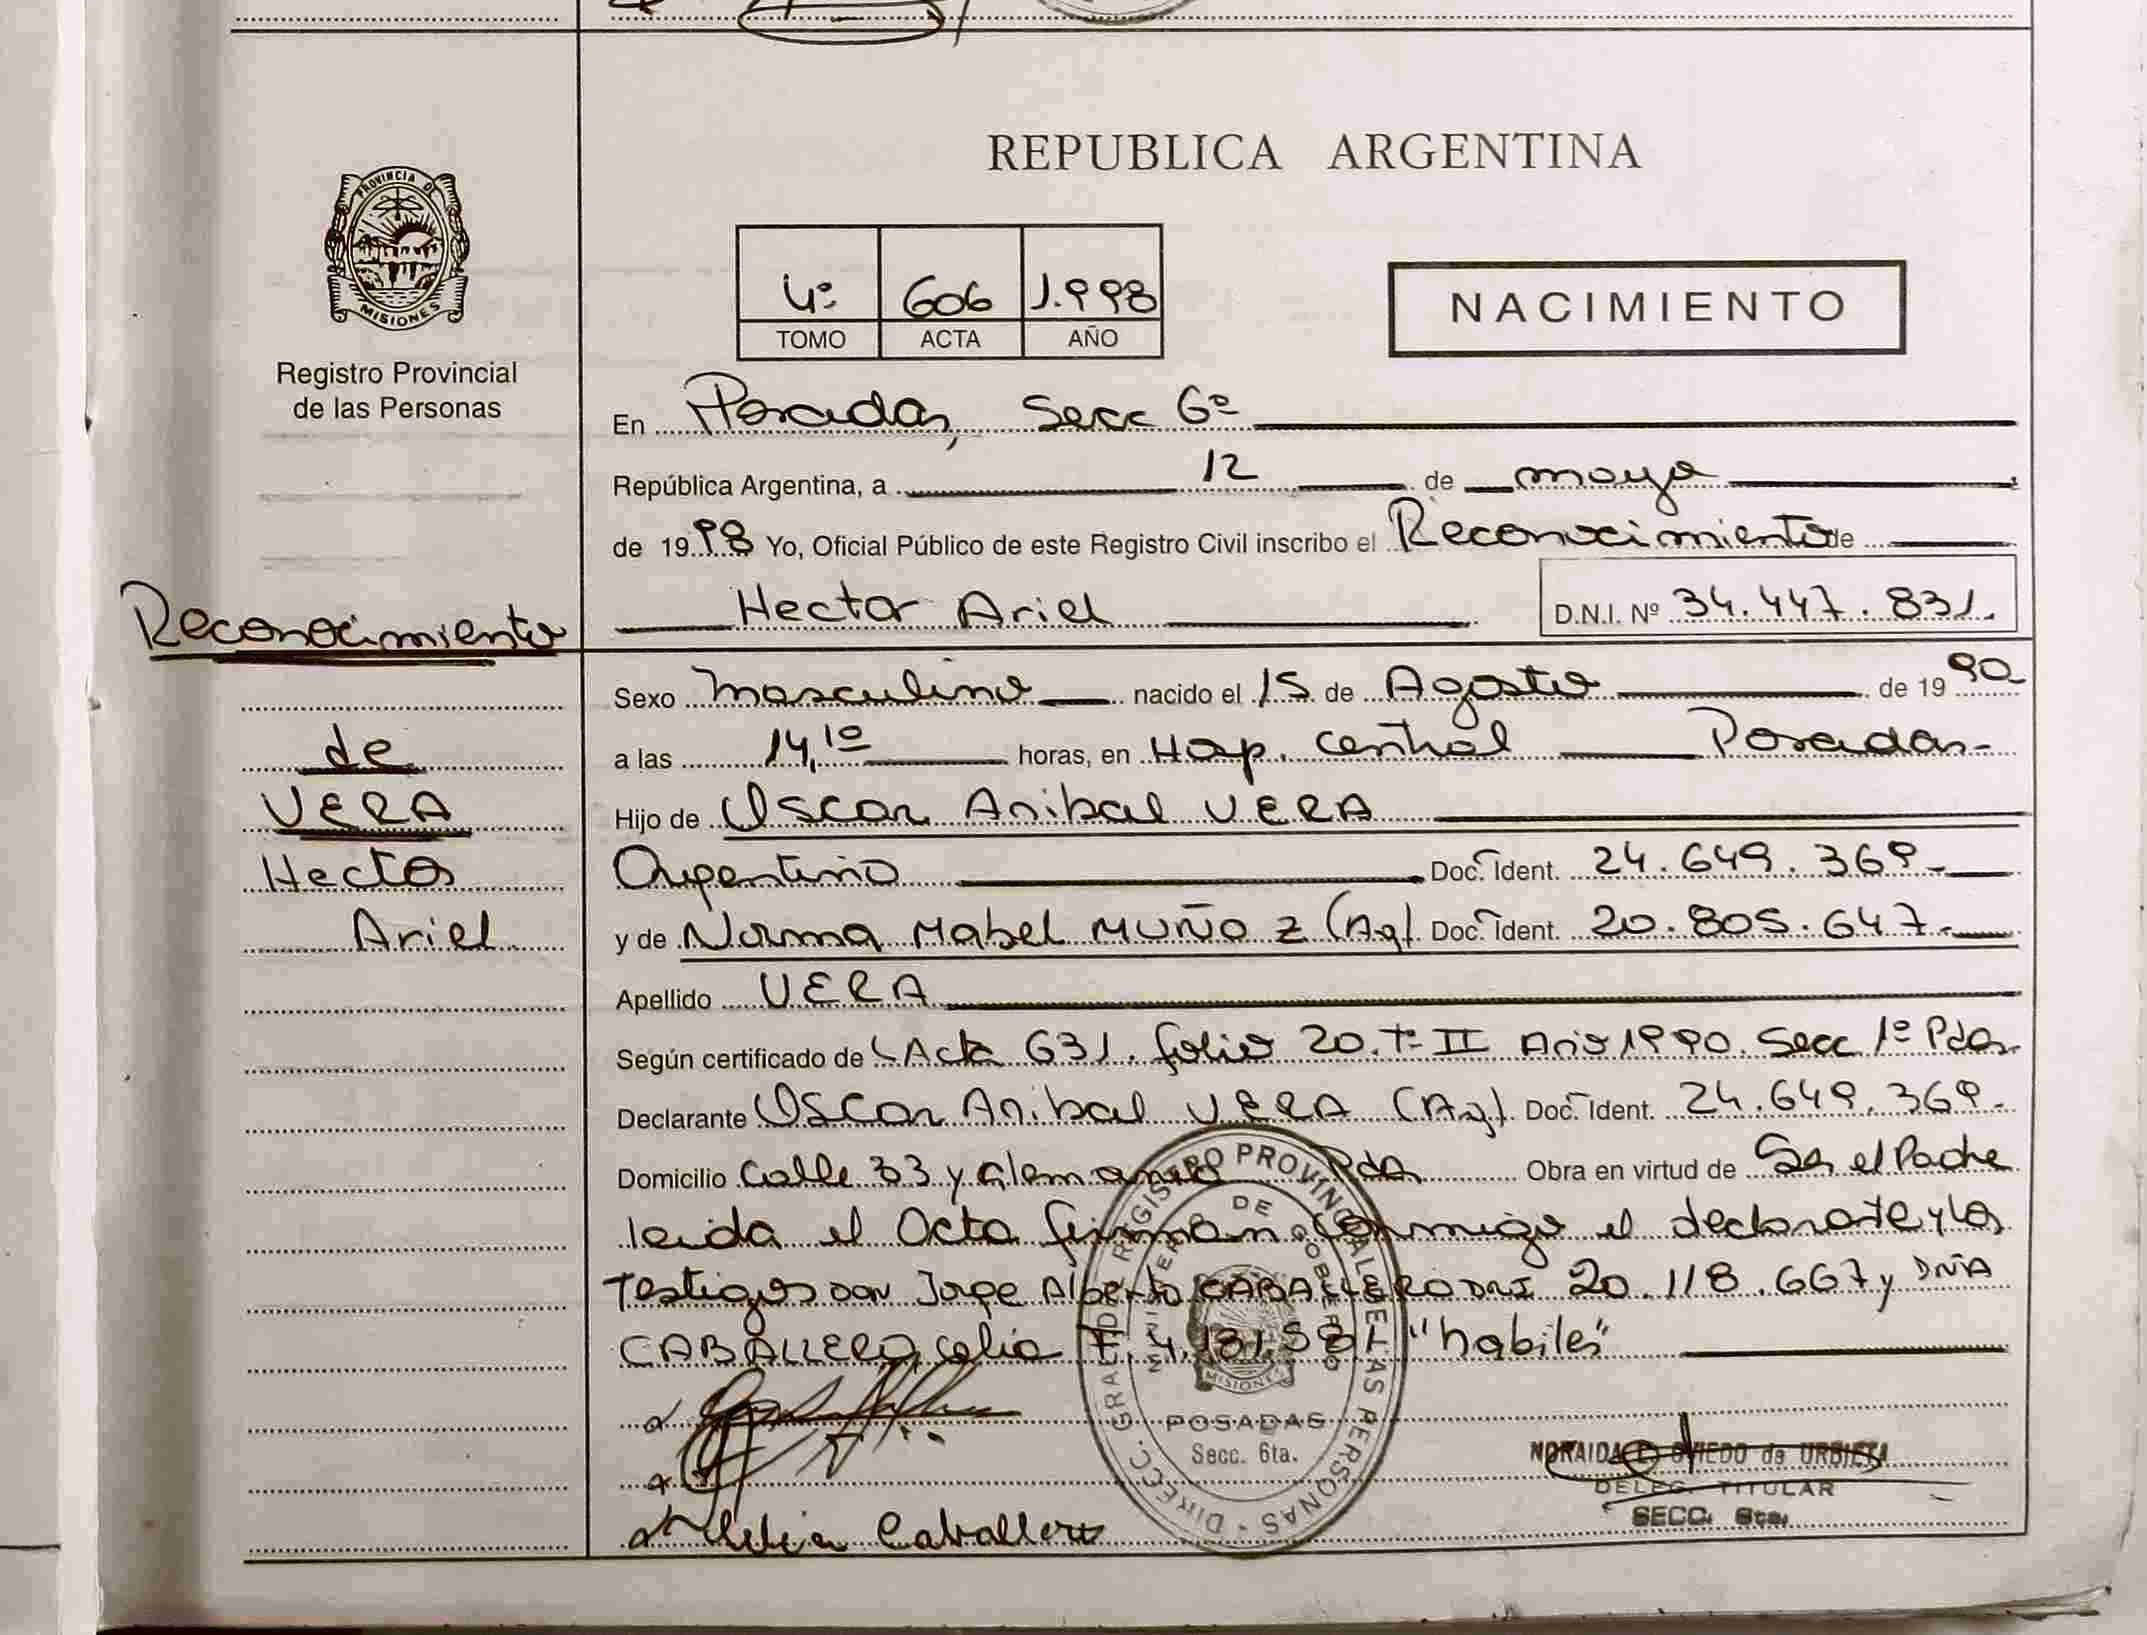 REPUBLICA ARGENTINA
PROVINCIA DE
MISIONES
Registro Provincial
de las Personas
4º 606 1.998
TOMO ACTA AÑO
NACIMIENTO
En Posadas, Secc 6º
República Argentina, a 12 de mayo
de 1998 Yo, Oficial Público de este Registro Civil inscribo el Reconocimiento de
Hector Ariel D.N.I. Nº 34.447.831.
Reconocimiento
de
VERA
Hector
Ariel
Sexo Masculino nacido el 15 de Agosto de 1990
a las 14,10 horas, en Hosp. Central Posadas-
Hijo de Oscar Anibal VERA
Argentino Doc. Ident. 24.649.369.-
y de Norma Mabel MUÑOZ (Ag). Doc. Ident. 20.805.647.-
Apellido VERA
Según certificado de Acta 631. folio 20. Tº II Año 1990. Secc 1º Pdas.
Declarante Oscar Anibal VERA (Ag). Doc. Ident. 24.649.369.-
Domicilio Calle 33 y Alemania Pdas Obra en virtud de Ser el Padre
leida el Acta firman conmigo el declarante y los
Testigos don Jorge Alberto CABALLERO DNI 20.118.667 y DÑA
CABALLERO, Celia F. 4.131.581 "habiles"
DIRECC. GRAL. DE REGISTRO PROVINCIAL DE LAS PERSONAS
MINISTERIO DE GOBIERNO
MISIONES
POSADAS
Secc. 6ta.
NORAIDA E. OVIEDO de URBIETA
DELEG. TITULAR
SECC. 6ta.
Caballero